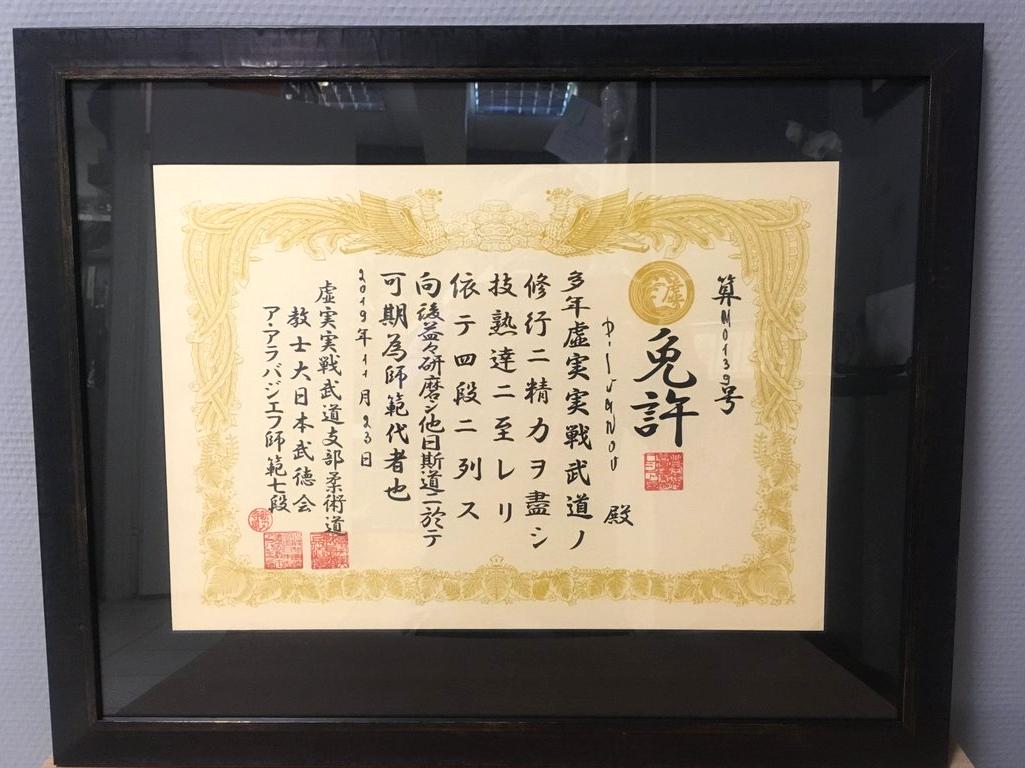 算M0139号
免許
D・IVANOV 殿
多年虚実実戦武道ノ
修行ニ精力ヲ盡シ
技熟達ニ至レリ
依テ四段ニ列ス
向後益々研磨シ他日斯道ニ於テ
可期為師範代者也
2019年11月23日
虚実実戦武道支部柔術道
教士大日本武徳会
ア・アラバジエフ師範七段